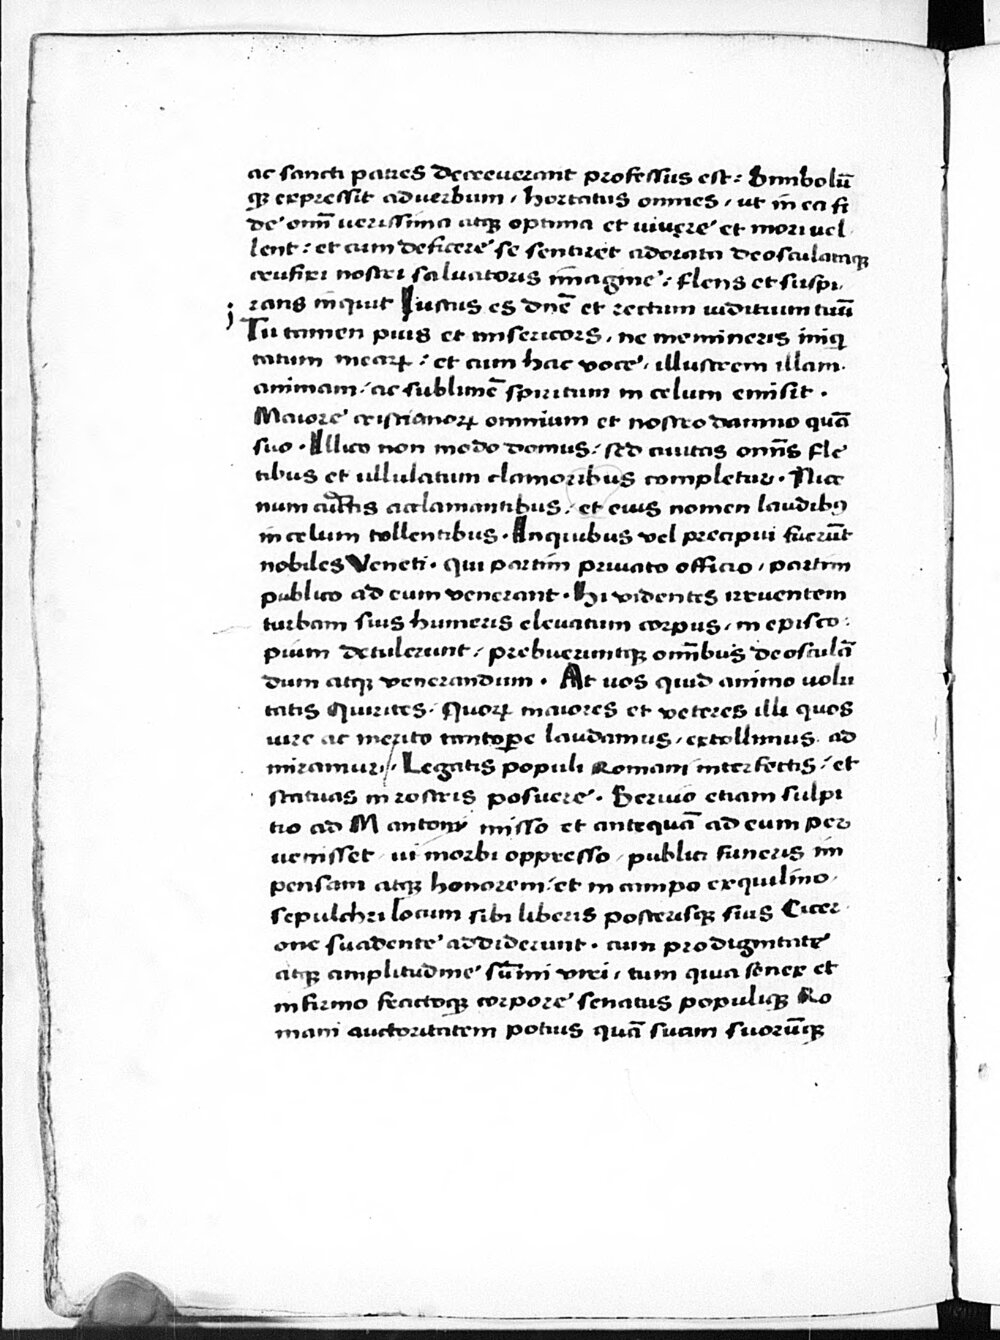 ac sancti patres decreuerant professus est: Simbolū
qꝫ expressit aduerbum / hortatus omnes / ut in ea fi
de om̄i uerissima atqꝫ optima et uiuere et mori uel
lent : et cum deficere se sentiret adorata deosculataqꝫ
crucifixi nostri saluatoris imagine : flens et suspi
rans inquit Iustus es dn̄e et rectum iuditium tuū
Tu tamen puis et misericors . ne memineris iniqꝫ
tatum mearꝝ : et cum hac voce / illustrem illam
animam / ac sublimē spiritum in celum emisit .
Maiore cristianorꝝ omnium et nostro damno quā
suo . Illico non modo domus : sed ciuitas omn̄s fle
tibus et ullulatum clamoribus completur . Nice
num cūctis acclamantibus / et eius nomen laudibꝰ
in celum tollentibus . In quibus vel precipui fuerūt
nobiles Veneti . qui partim priuato officio / partim
publico ad eum venerant . Hi videntes irruentem
turbam suis humeris eleuatum corpus / in episco
pium detulerunt / prebueruntqꝫ omn̄ibus deosculā
dum atqꝫ venerandum . At uos quid animo uolu
tatis Quirites . Quorꝝ maiores et veteres illi quos
iure ac merito tantope laudamus / extollimus ad
miramur / Legatis populi Romani interfectis / et
statuas in rostris posuere . Seruio etiam sulpi
tio ad M antony misso et antequā ad eum per
uenisset ui morbi oppresso / publici funeris im
pensam atqꝫ honorem / et in campo exquilino
sepulchri locum sibi liberis posterisqꝫ suis Cicer
one suadente addiderunt . cum pro dignitate
atqꝫ amplitudine sūmi viri / tum quia senex et
infirmo fractoqꝫ corpore senatus populiqꝫ Ro
mani auctoritatem potius quā suam suorūqꝫ